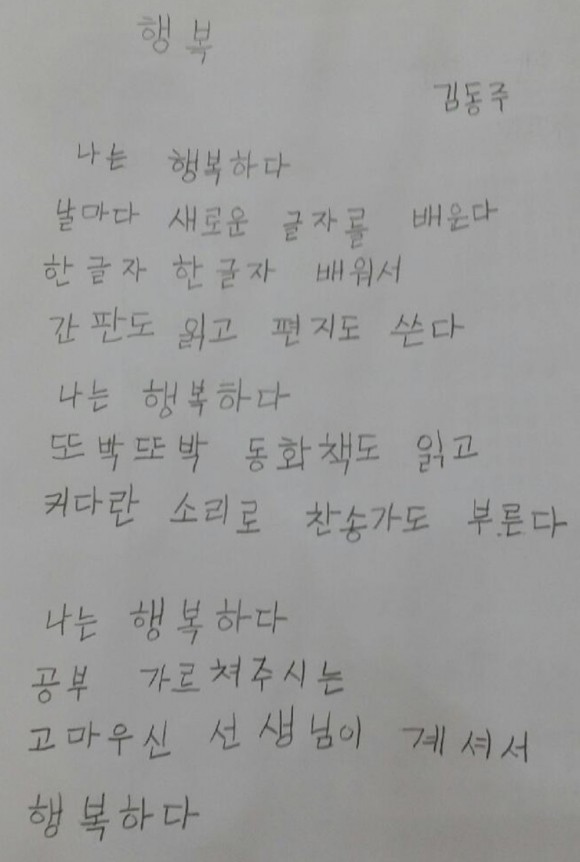 행복
김동주
나는 행복하다
날마다 새로운 글자를 배운다
한글자 한글자 배워서
간판도 읽고 편지도 쓴다
나는 행복하다
또박또박 동화책도 읽고
커다란 소리로 찬송가도 부른다
나는 행복하다
공부 가르쳐주시는
고마우신 선생님이 계셔서
행복하다